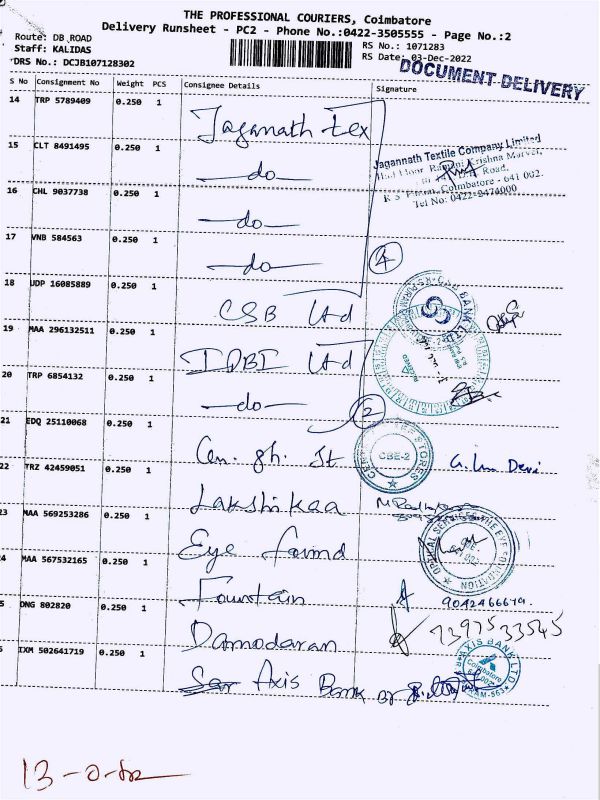 THE PROFESSIONAL COURIERS, Coimbatore
Delivery Runsheet - PC2 - Phone No.:0422-3505555 - Page No.:2
Route: DB ROAD
Staff: KALIDAS
DRS No.: DCJB107128302
RS No.: 1071283
RS Date: 03-Dec-2022
DOCUMENT DELIVERY
S No Consignment No Weight PCS Consignee Details Signature
14 TRP 5789409 0.250 1 Jagannath tex
15 CLT 8491495 0.250 1 do
Jagannath Textile Company Limited
Krishna Marvel,
Road,
Coimbatore - 641 002.
Tel No: 0422-2474000
16 CHL 9037738 0.250 1 do
17 VNB 584563 0.250 1 do
4
18 UDP 16085889 0.250 1 CSB Ltd
BANK LTD
19 MAA 296132511 0.250 1 IDBI Ltd
20 TRP 6854132 0.250 1 do
2
21 EDQ 25110068 0.250 1 Can. gh. St
CBE-2
STORES
22 TRZ 42459051 0.250 1 Lakshikaa
23 MAA 569253286 0.250 1 Eye found
EYE FOUNDATION
24 MAA 567532165 0.250 1 Fountain
25 DNG 802820 0.250 1 Damodaran
7397533545
26 IXM 502641719 0.250 1 Axis Bank
AXIS BANK LTD
Coimbatore
13-0-